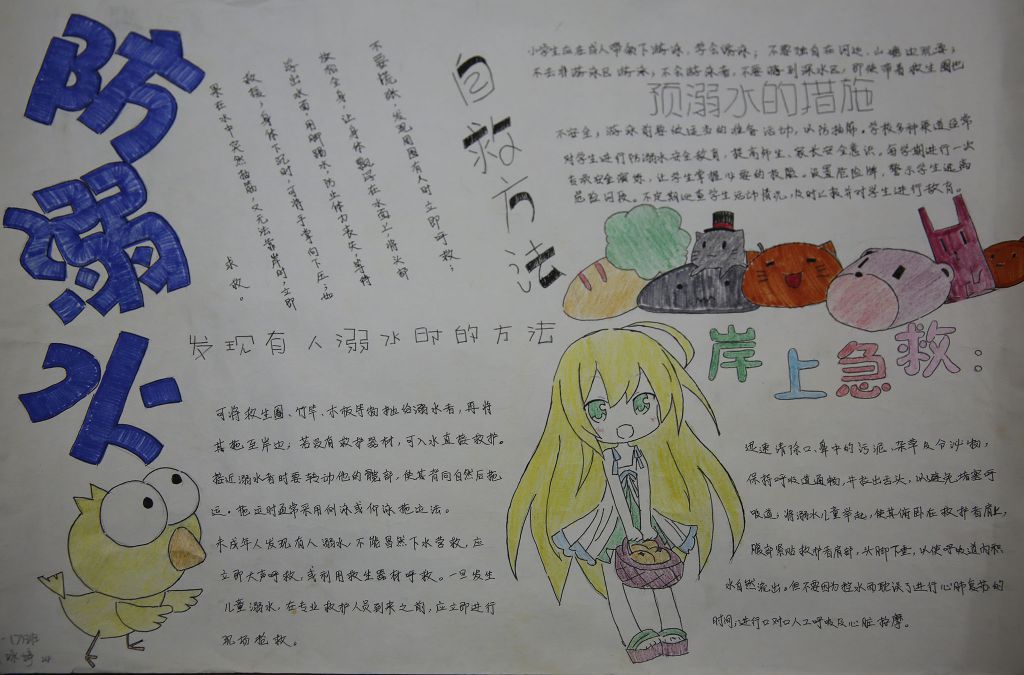 防溺水
自救方法
不要慌张,发现周围有人时立即呼救;
放松全身,让身体飘浮在水面上,将头部
浮出水面,用脚踢水,防止体力丧失,等待
救援;身体下沉时,可将手掌向下压;如
果在水中突然抽筋,又无法靠岸时,立即
求救。
小学生应在成人带领下游泳,学会游泳;不要独自在河边、山塘边玩耍;
不去非游泳区游泳;不会游泳者,不要游到深水区,即使带着救生圈也
预溺水的措施
不安全;游泳前要做适当的准备活动,以防抽筋。学校多种渠道经常
对学生进行防溺水安全教育,提高师生、家长安全意识。每学期进行一次
安全演练,让学生掌握必要的技能。设置危险牌,警示学生远离
危险河段。不定期
发现有人溺水时的方法
可将救生圈、竹竿、木板等物抛给溺水者,再将
其拖至岸边;若没有救护器材,可入水直接救护。
接近溺水者时要转动他的髋部,使其背向自然后拖
运。拖运时通常采用侧泳或仰泳拖运法。
未成年人发现有人溺水,不能冒然下水营救,应
立即大声呼救,或利用救生器材呼救。一旦发生
儿童溺水,在专业救护人员到来之前,应立即进行
现场抢救。
岸上急救:
迅速清除口、鼻中的污泥、杂草及分泌物,
保持呼吸道通畅,并拉出舌头,以避免堵塞呼
吸道;将溺水儿童举起,使其俯卧在救护者肩上,
腹部紧贴救护者肩部,头脚下垂,以使呼吸道内积
水自然流出。但不要因为控水而耽误了进行心肺复苏的
时间;进行口对口人工呼吸及心脏按摩。